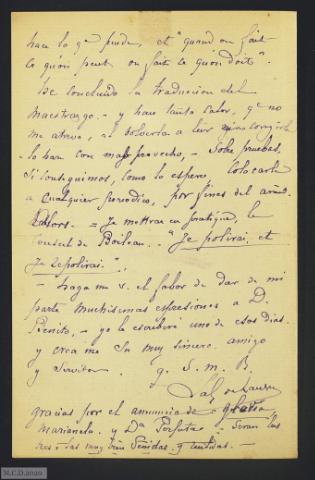 hace lo que puede, et "quand on fait
ce qu'on peut on fait ce qu'on doit".
He concluido la traduccion del
Maestrazgo. - y hace tanto calor, qe no
me atrevo, a volverla a leer
lo haré con mas provecho, - Sobre pruebas.
Si conseguimos, como lo espero, colocarla
a cualquier periodico, por fines del año.
Alors. = Je mettrai en pratique, le
conseil de Boileau. - "Je polirai, et
Je repolirai".
- haga me v. el fabor de dar de mi
parte muchisimas espresiones a D.
Benito, - yo le escribire uno de esos dias.
y crea me Su muy sincero amigo
y Servidor. q. S. M. B.
gracias por el annuncio de Gloria
Marianela y Da Perfecta - Seran las
tres - las muy bien Venidas, y
M.C.D. 2020